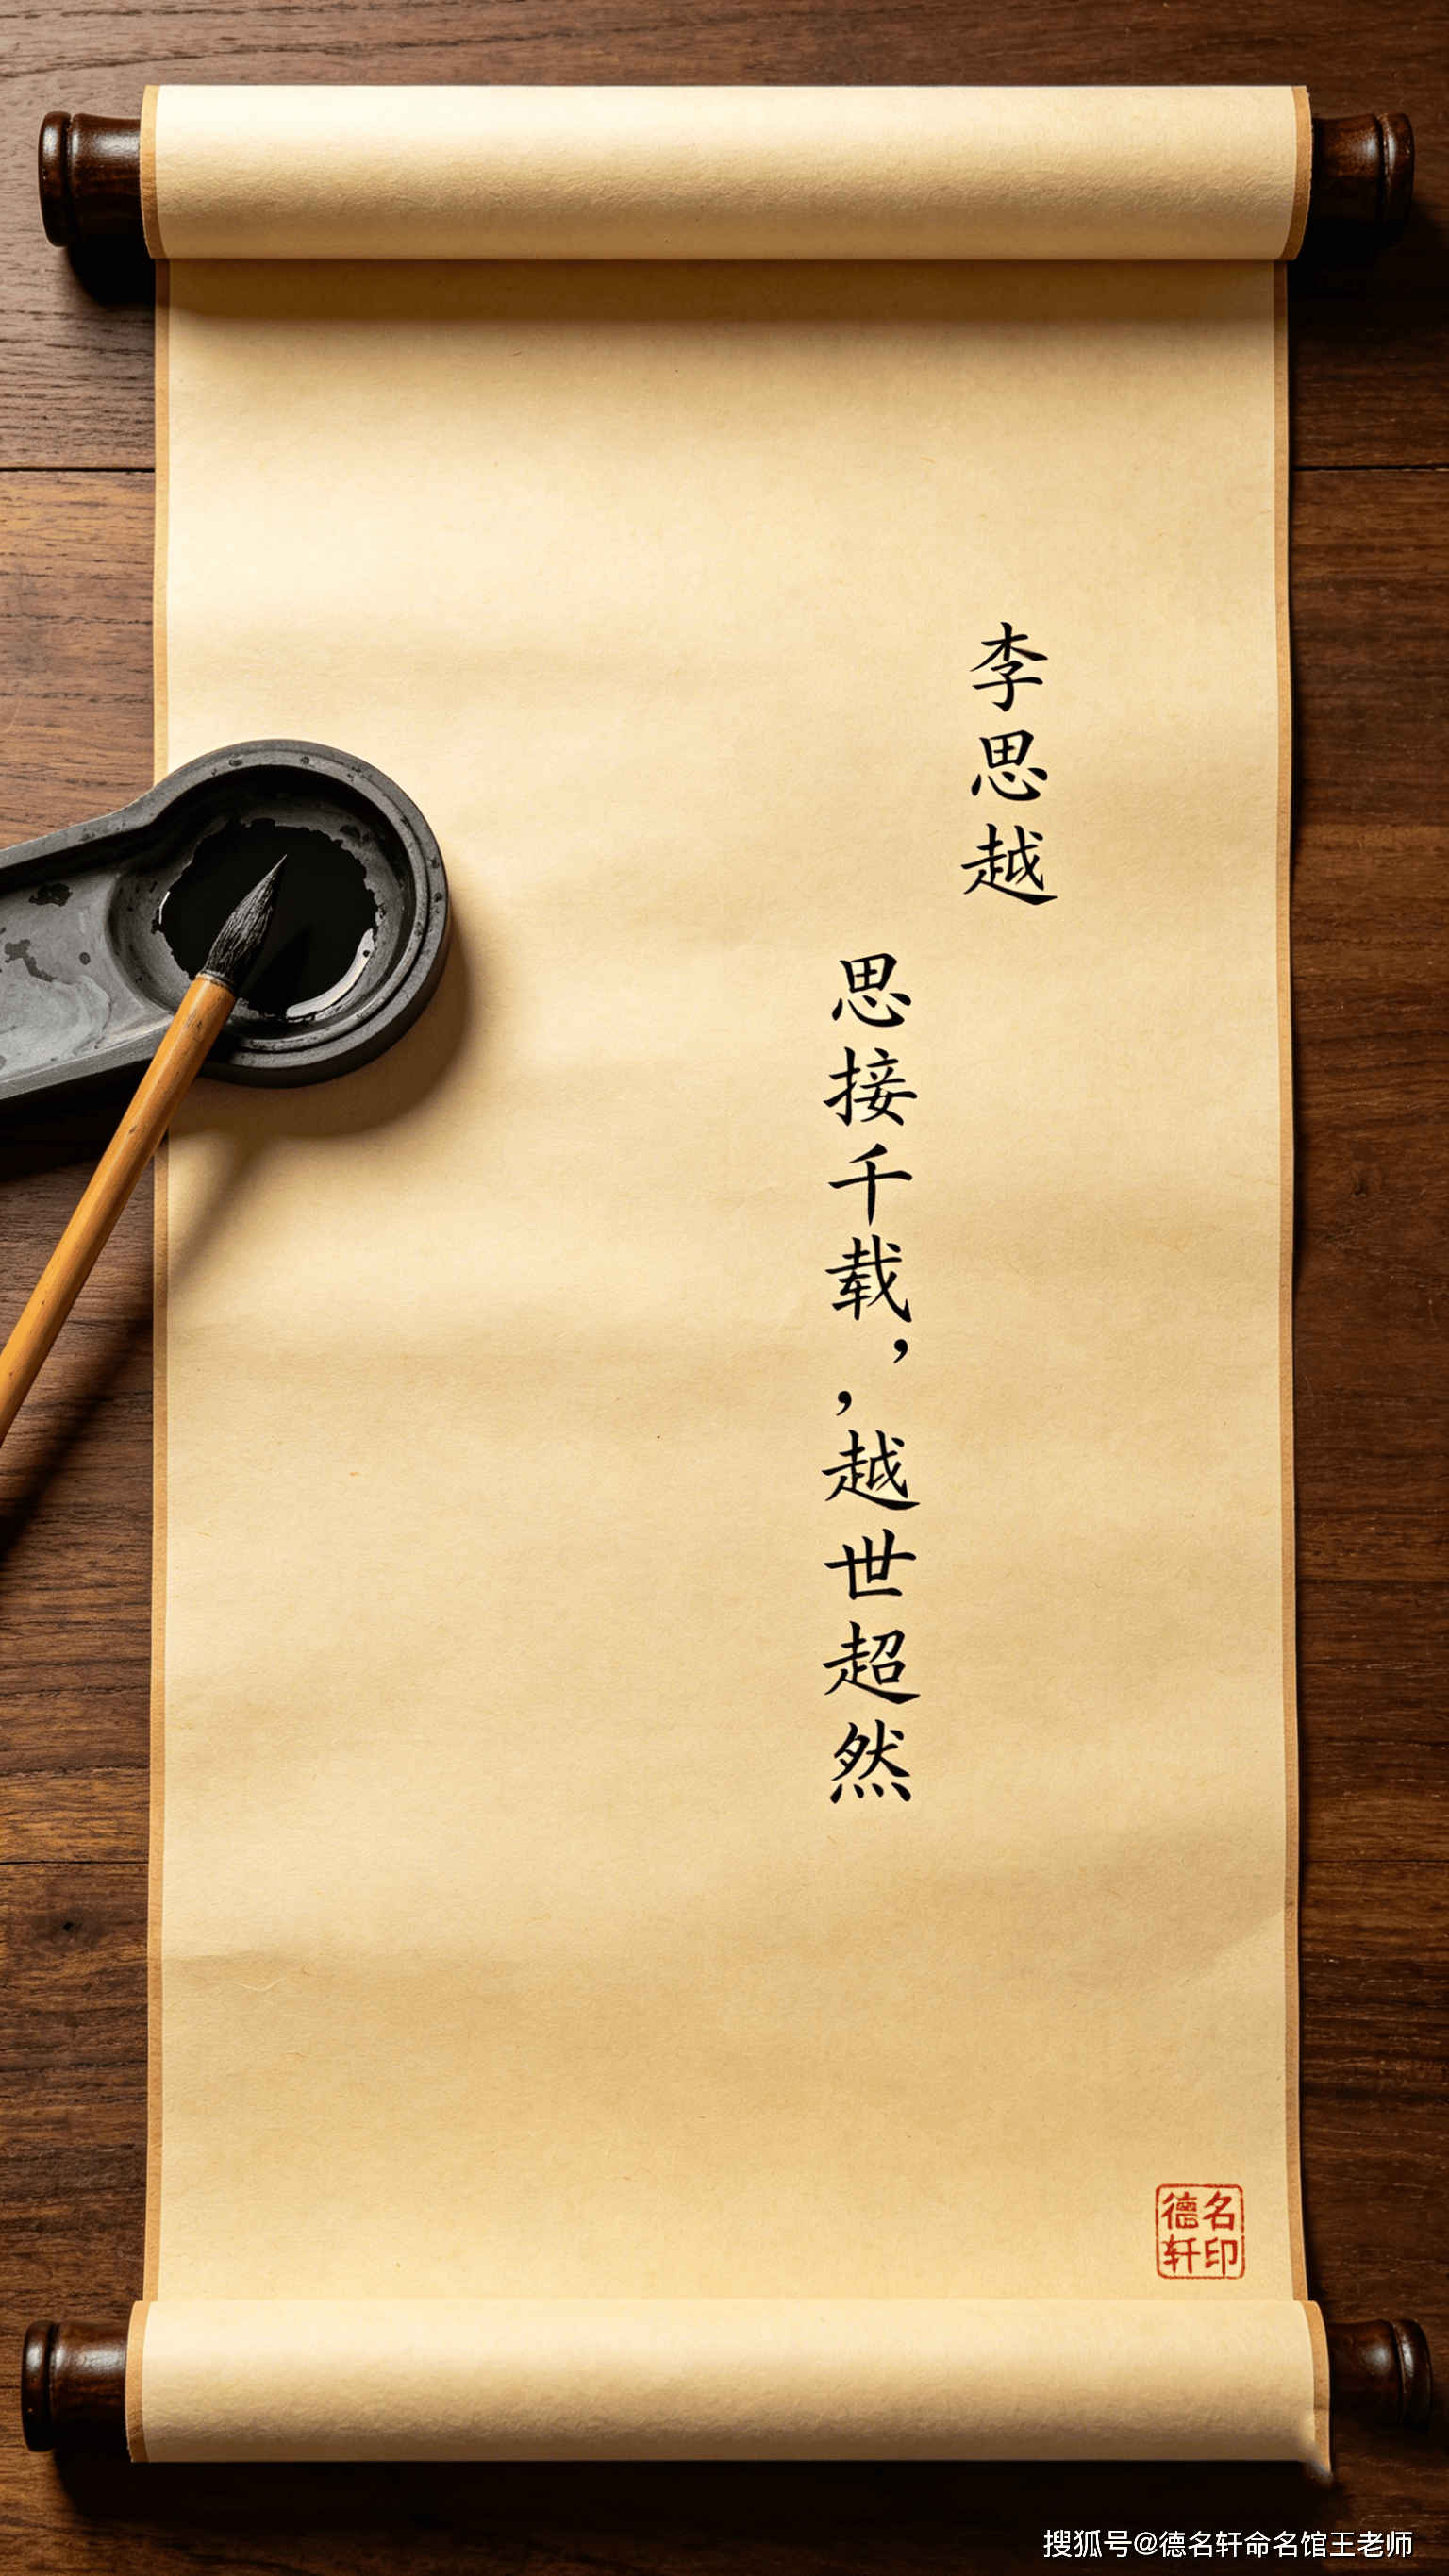 李思越
思接千载，，越世超然
德名
轩印
搜狐号@德名轩命名馆王老师